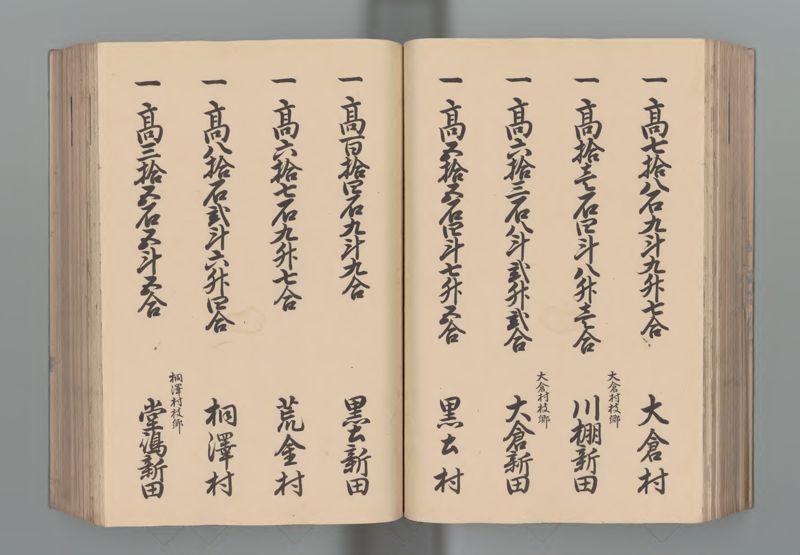 一 高七拾八石九斗九升七合 大倉村
一 高拾壱石四斗八升壱合 大倉村枝郷 川棚新田
一 高六拾三石八斗弐升弐合 大倉村枝郷 大倉新田
一 高五拾五石四斗七升五合 黒土村
一 高百拾四石九斗九合 黒土新田
一 高六拾七石九升七合 荒金村
一 高八拾石弐斗六升四合 桐澤村
一 高三拾五石五斗五合 桐澤村枝郷 堂嶋新田